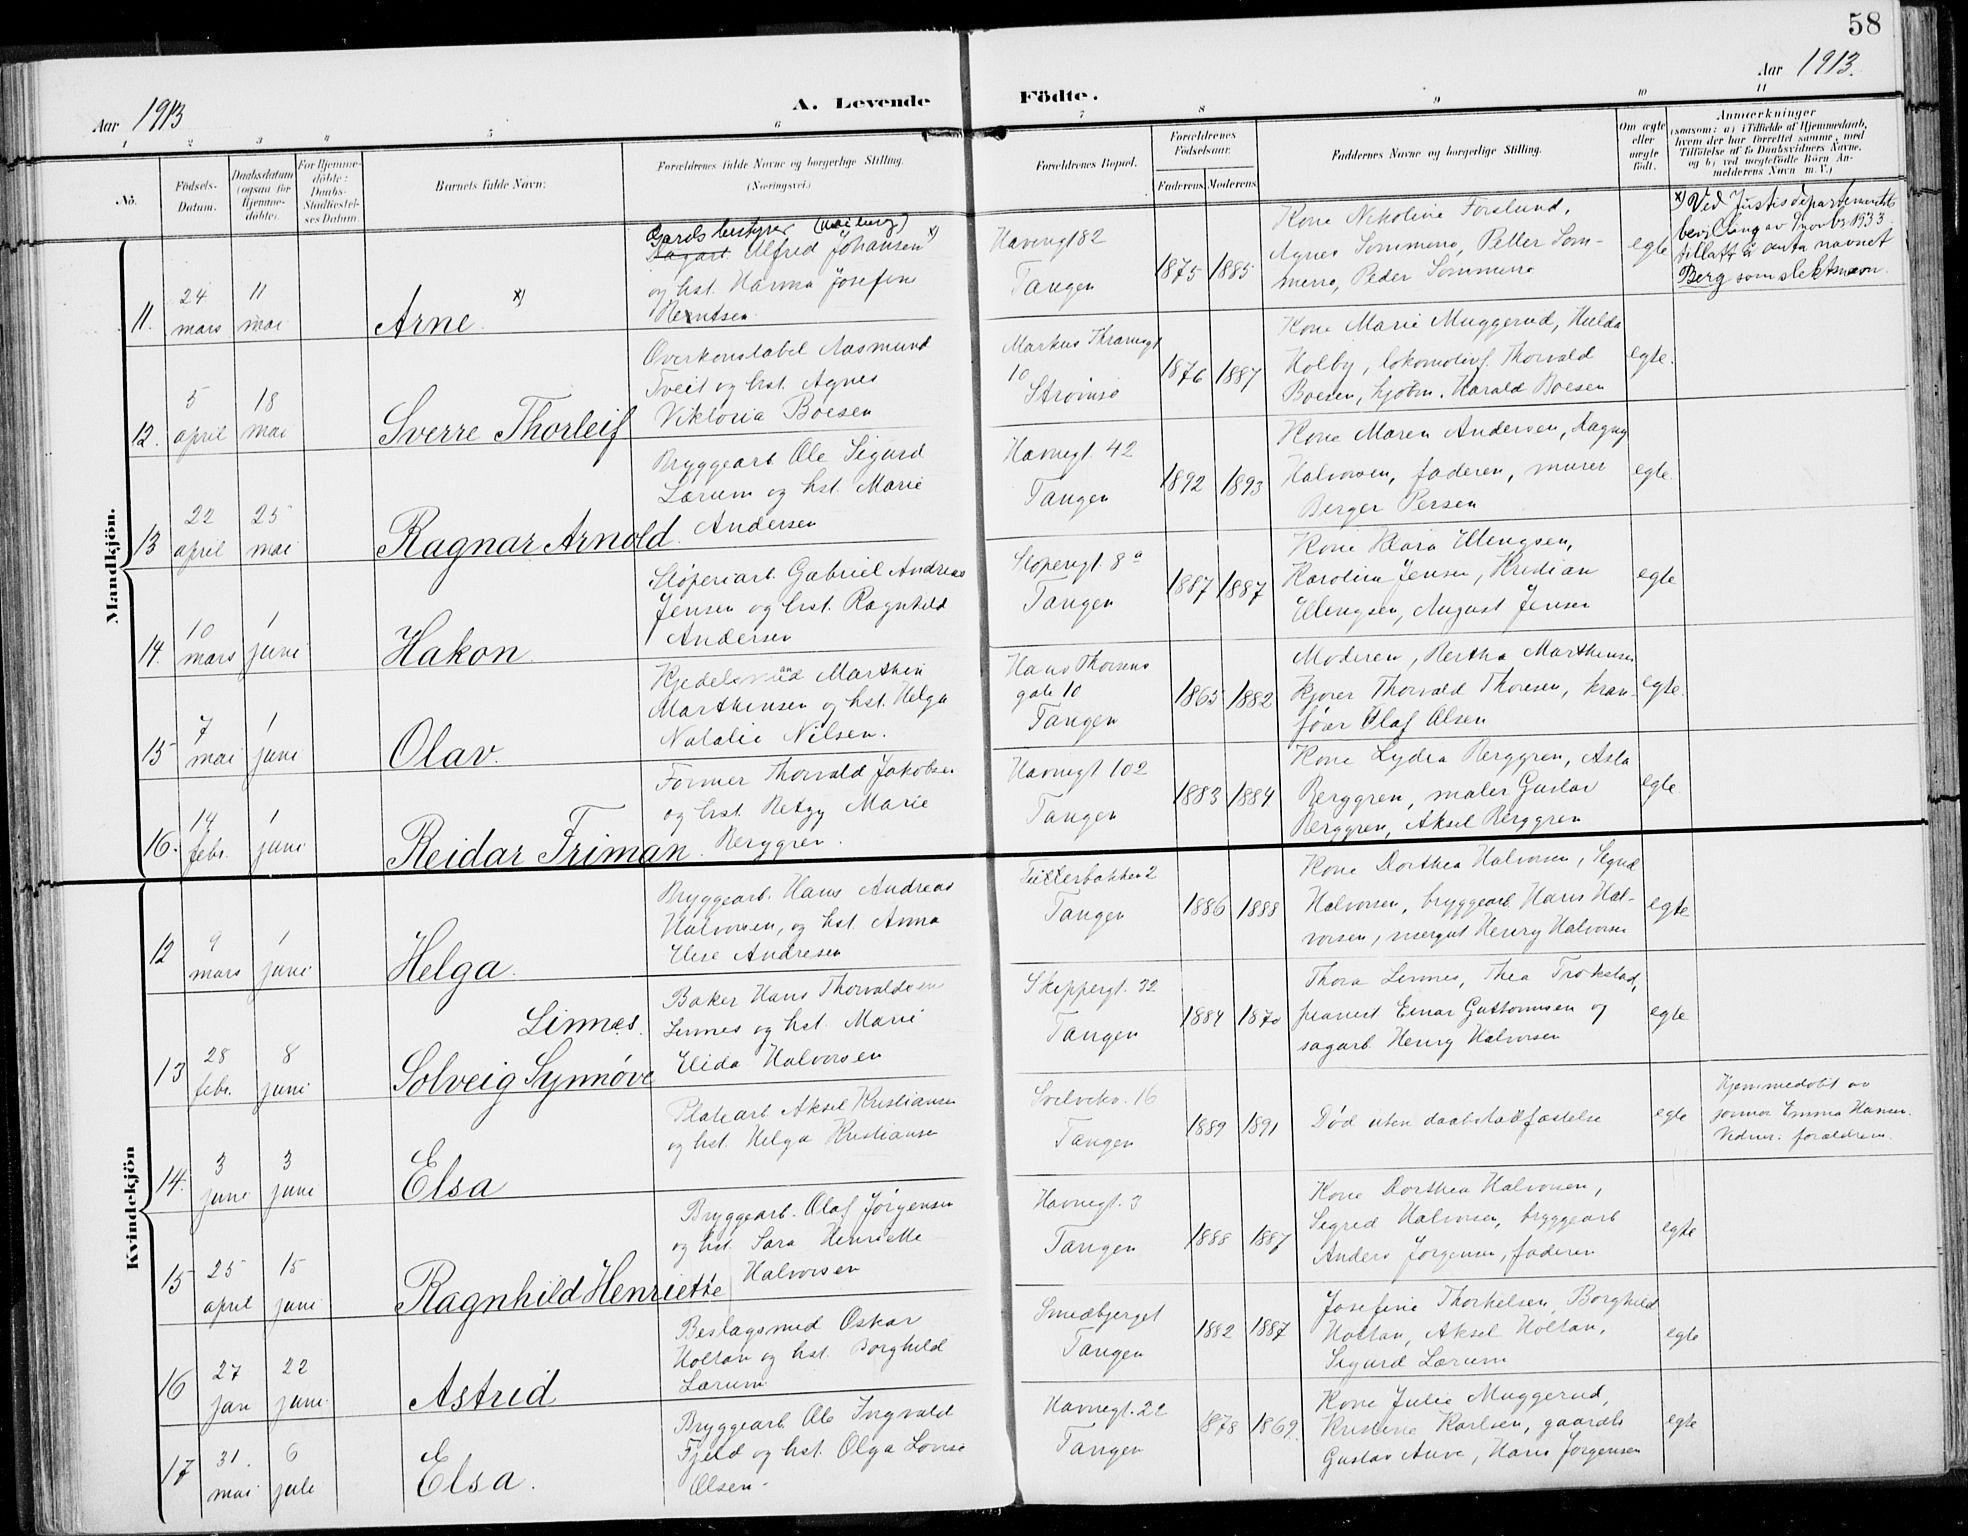 58
Aar 1913.
Aar 1913
A. Levende Födte.
1 2 3 4 5 6 7 8 9 10 11
No.
Fødsels-
Datum.
Daabsdatum
(ogsaa for
Hjemme-
døbte).
For Hjemme-
døbte:
Daabs-
Stadfæstel-
ses Datum.
Barnets fulde Navn:
Forældrenes fulde Navne og borgerlige Stilling.
(Næringsvei.)
Forældrenes Bopæl.
Forældrenes
Fødselsaar.
Faderens. Moderens.
Faddernes Navne og borgerlige Stilling.
Om ægte
eller
uægte
født.
Anmærkninger
(saasom: a) i Tilfælde af Hjemmedaab,
hvem der har forrettet samme, med
Tilføielse af to Daabsvidners Navne,
og b) ved uegtefødte Børn An-
melderens Navn m. V.)
Mandkjön.
11. 24 mars 11 mai
Arne x)
Gards bestyrer
Alfred Johansen x)
og hst. Harma Josefine
Berntsen
Havnegt 82
Tangen
1875 1885
Kone Nikoline Forslund,
Agnes Sommero, Petter Som-
mero, Peder Sommero
egte
x) Ved Justisdepartementets
bevilling av 9 novbr 1933
tillatt å anta navnet
Berg som slektsnavn.
12. 5 april 18 mai
Sverre Thorleif
Overkonstabel Aasmund
Tveit og hst. Agnes
Viktoria Boesen
Markus Thranesgt
10
Strømsø
1876 1887
Kone Marie Muggerud, Hulda
Holby, lokomotivf. Thorvald
Boesen, kjøbm. Harald Boesen
egte.
13 22 april 25 mai
Ragnar Arnold.
Bryggearb. Ole Sigurd
Lærum og hst. Marie
Andersen
Havnegt. 42
Tangen
1892 1893
Kone Maren Andersen, Dagny
Halvorsen, faderen, murer
Berger Persen
egte.
14. 10 mars 1 juni
Hakon
Støperiarb. Gabriel Andreas
Jensen og hst. Ragnhild
Andersen
Støperigt. 8 a
Tangen
1887 1887
Kone Klara Ellingsen,
Karoline Jensen, Kristian
Ellingsen, August Jensen
egte
15 7 mai 1 juni
Olav.
Marthin
Marthinsen og hst. Helga
Natalie Nilsen.
Hans Thorsens
gate 10
Tangen
1865 1882
Moderen, Bertha Marthinsen
kjører Thorvald Thoresen, kran-
fører Olaf Olsen
egte.
16. 14 febr. 1 juni
Reidar Friman
Former Thorvald Jakobsen
og hst. Betzy Marie
Berggren.
Havnegt 102
Tangen
1883 1884
Kone Lydia Berggren, Asta
Berggren, maler Gustav
Berggren, Aksel Berggren
egte
Kvindekjön
12 9 mars 1 juni
Helga.
Bryggearb. Hans Andreas
Halvorsen, og hst. Anna
Elise Andresen
Tutterbakken 2
Tangen
1886 1888
Kone Dorthea Halvorsen, Sigrid
Halvorsen, bryggearb. Hans Hal-
vorsen, Henry Halvorsen
egte
13 28 febr. 8 juni
Linnæs.
Solveig Synnøve
Baker Hans Thorvaldsen
Linnes og hst. Marie
Elida Halvorsen
Skippergt. 32
Tangen
1884 1870
Thora Linnes, Thea Trøkstad,
pianist Einar Guttormsen og
sagarb. Henry Halvorsen
egte
14. 3 juni 3 juni
Elsa
Platearb Aksel Kristiansen
og hst. Helga Kristiansen
Svelvekv. 16
Tangen
1889 1891
Død uten daabstadfæstelse
egte
Hjemmedøbt av
jormor Emma Hansen.
Vidner: forældrene.
15 25 april 15 juni
Ragnhild Henriette
Bryggearb. Olaf Jørgensen
og hst. Sara Henriette
Halvorsen
Havnegt. 3
Tangen
1888 1887
Kone Dorthea Halvorsen,
Sigrid Halvorsen, bryggearb
Anders Jørgensen, faderen
egte
16 27 jan 22 juni
Astrid
Beslagsmed Oskar
Holtan og hst. Borghild
Lærum
Smedbjerget
Tangen
1882 1887
Josefine Thorkelsen, Borghild
Holtan, Aksel Holtan,
Sigurd Lærum
egte
17 31. mai 6 juli
Elsa.
Bryggearb. Ole Ingvald
Fjeld og hst. Olga Lovise
Olsen.
Havnegt. 22
Tangen
1878 1869.
Kone Julie Muggerud,
Kristine Karlsen, gaardb
Gustav Auve, Hans Jørgensen
egte